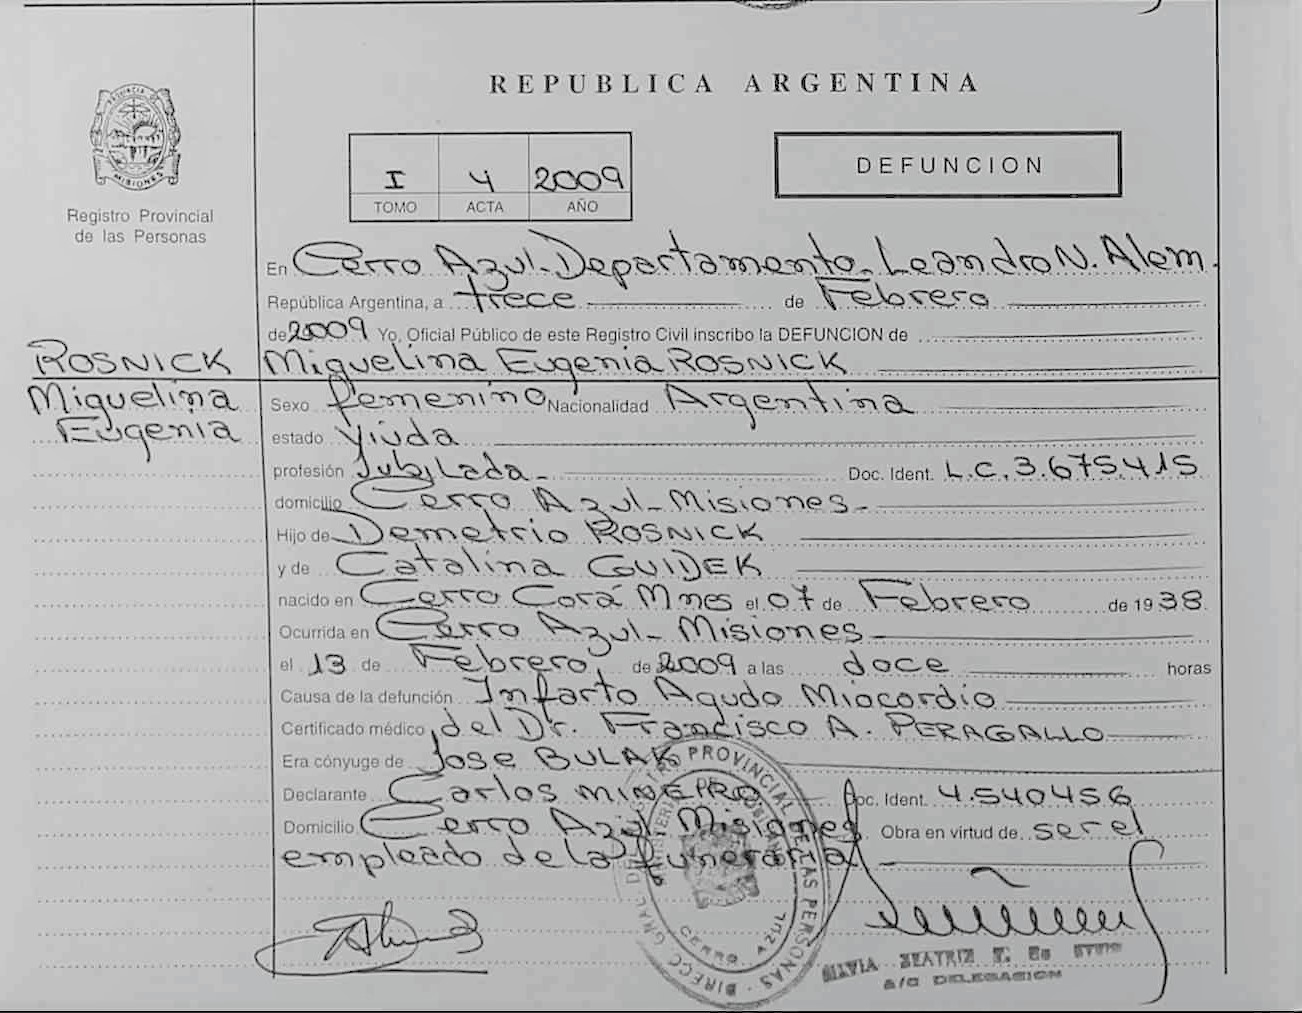 REPUBLICA ARGENTINA
PROVINCIA DE
MISIONES
Registro Provincial
de las Personas
I 4 2009
TOMO ACTA AÑO
DEFUNCION
En Cerro Azul - Departamento - Leandro N. Alem.
República Argentina, a trece de Febrero
de 2009 Yo, Oficial Público de este Registro Civil inscribo la DEFUNCION de
ROSNICK Miguelina Eugenia ROSNICK
Miguelina Sexo femenino Nacionalidad Argentina
Eugenia estado Viuda
profesión Jubilada - Doc. Ident. L.C. 3.675.415
domicilio Cerro Azul - Misiones -
Hijo de Demetrio ROSNICK
y de Catalina GUIDEK
nacido en Cerro Corá Mnes el 07 de Febrero de 1938
Ocurrida en Cerro Azul - Misiones -
el 13 de Febrero, de 2009 a las doce horas
Causa de la defunción Infarto Agudo Miocordio
Certificado médico del Dr. Francisco A. PERAGALLO
Era cónyuge de Jose BULAK
Declarante Carlos Doc. Ident. 4.540456
Domicilio Cerro Azul Misiones Obra en virtud de ser el
empleado de la funeraria
PROVINCIAL DE LAS PERSONAS
CERRO AZUL
SILVIA BEATRIZ
A/C DELEGACION